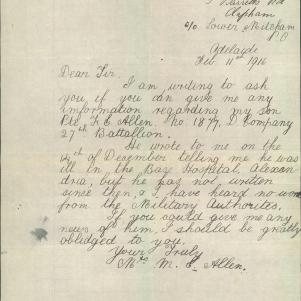 Clapham
c/o Lower Mitcham
P.O
Adelaide
Feb. 11th 1916
Dear Sir.
I am writing to ask
you if you can give me any
information regarding my son
Pte. F. E. Allen. No 1877, D Company
27th Battallion.
He wrote to me on the
14th of December telling me he was
ill in the Base Hospital Alexan
dria, but he has not written
since then, & I have heard no
from the Military Authorites.
If you could give me any
news of him, I should be greatly
obliged to you.
Yours Truly
Mrs M. E. Allen.